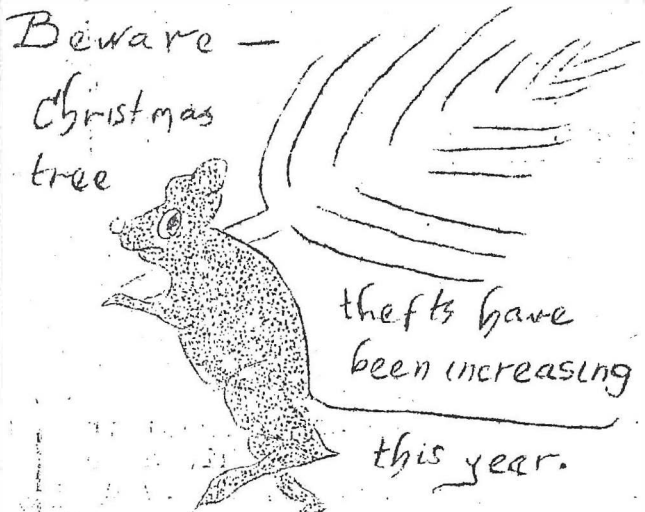 Beware —
Christmas
tree
thefts have
been increasing
this year.